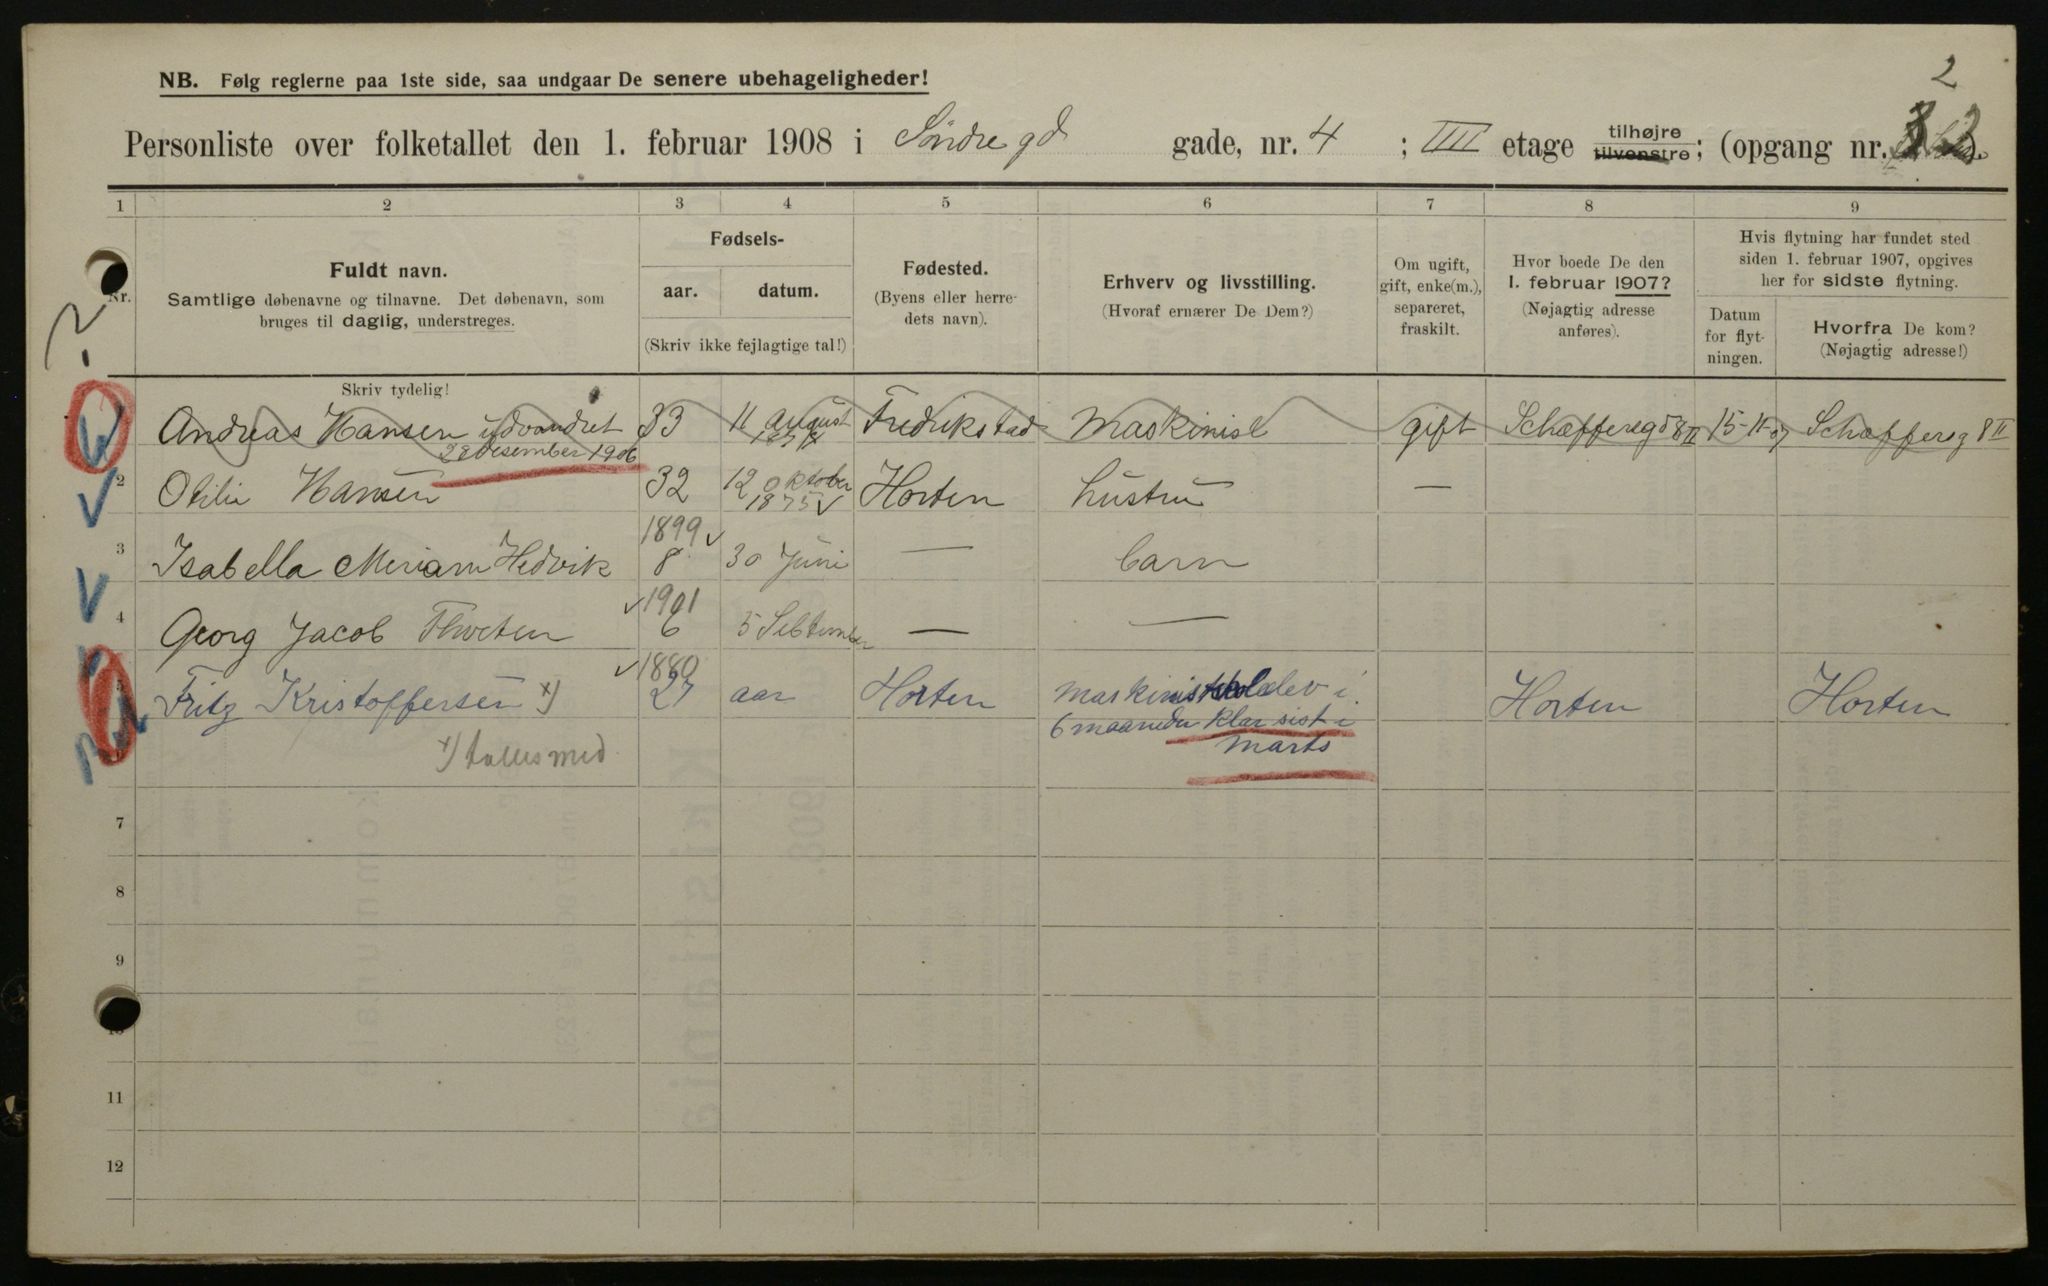 2
NB. Følg reglerne paa 1ste side, saa undgaar De senere ubehageligheder!
Personliste over folketallet den 1. februar 1908 i Söndre gd gade, nr. 4 ; IIII etage tilhøjre tilvenstre; (opgang nr. 2).
1 2 3 4 5 6 7 8 9
Nr.
Fuldt navn.
Samtlige døbenavne og tilnavne. Det døbenavn, som
bruges til daglig, understreges.
Skriv tydelig!
Fødsels-
aar. datum.
(Skriv ikke fejlagtige tal!)
Fødested.
(Byens eller herre-
dets navn).
Erhverv og livsstilling.
(Hvoraf ernærer De Dem?)
Om ugift,
gift, enke(m.),
separeret,
fraskilt.
Hvor boede De den
1. februar 1907?
(Nøjagtig adresse
anføres).
Hvis flytning har fundet sted
siden 1. februar 1907, opgives
her for sidste flytning.
Datum
for flyt-
ningen.
Hvorfra De kom?
(Nøjagtig adresse!)
Andreas Hansen udvandret 33 11 august Fredrikstad Maskinist gift Schæffersgd 8 II 15-11-07 Schæffersg 8 II
22 desember 1906
2 Otilie Hansen 32 12 oktober 1875 Horten hustru —
1899
3 Isabella Miriam Hedvik 8 30 Juni — barn
1901
4 Georg Jacob 6 5 September — —
1880
5 Fritz Kristoffersen x) 27 aar Horten maskinistskolelev i Horten Horten
6 maaneder klar sist i
marts
6 x) talles med
7
8
9
10
11
12